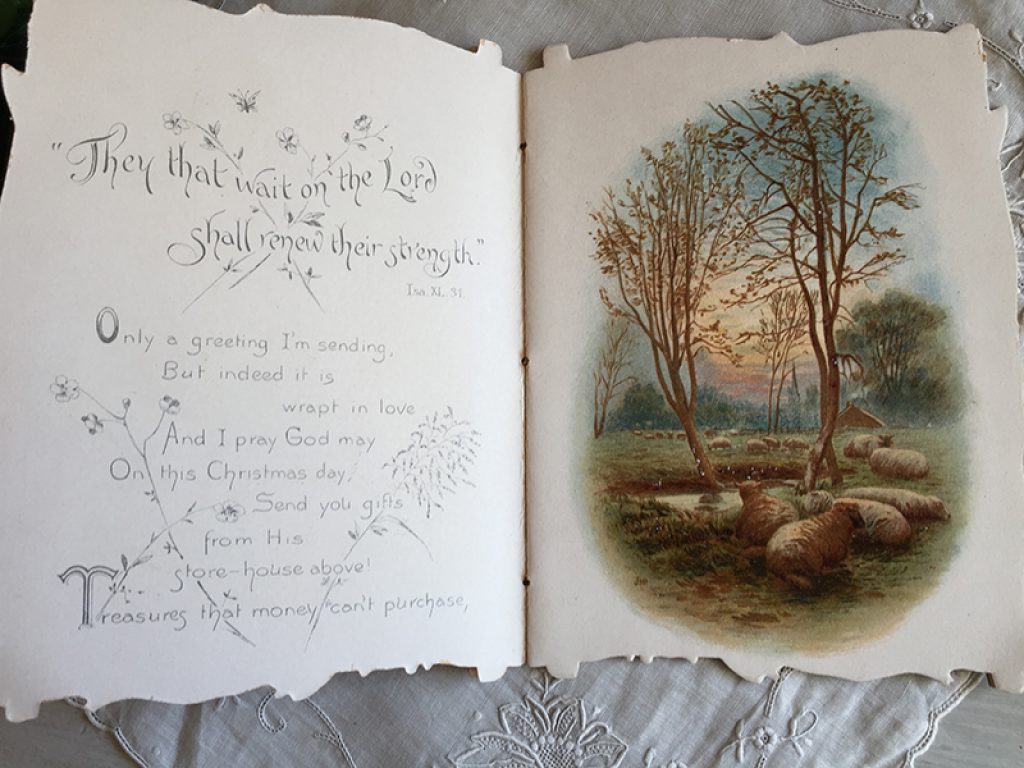 "They that wait on the Lord
shall renew their strength."
Isa. XL. 31.
Only a greeting I'm sending,
But indeed it is
wrapt in love
And I pray God may
On this Christmas day,
Send you gifts
from His
store-house above!
Treasures that money can't purchase,